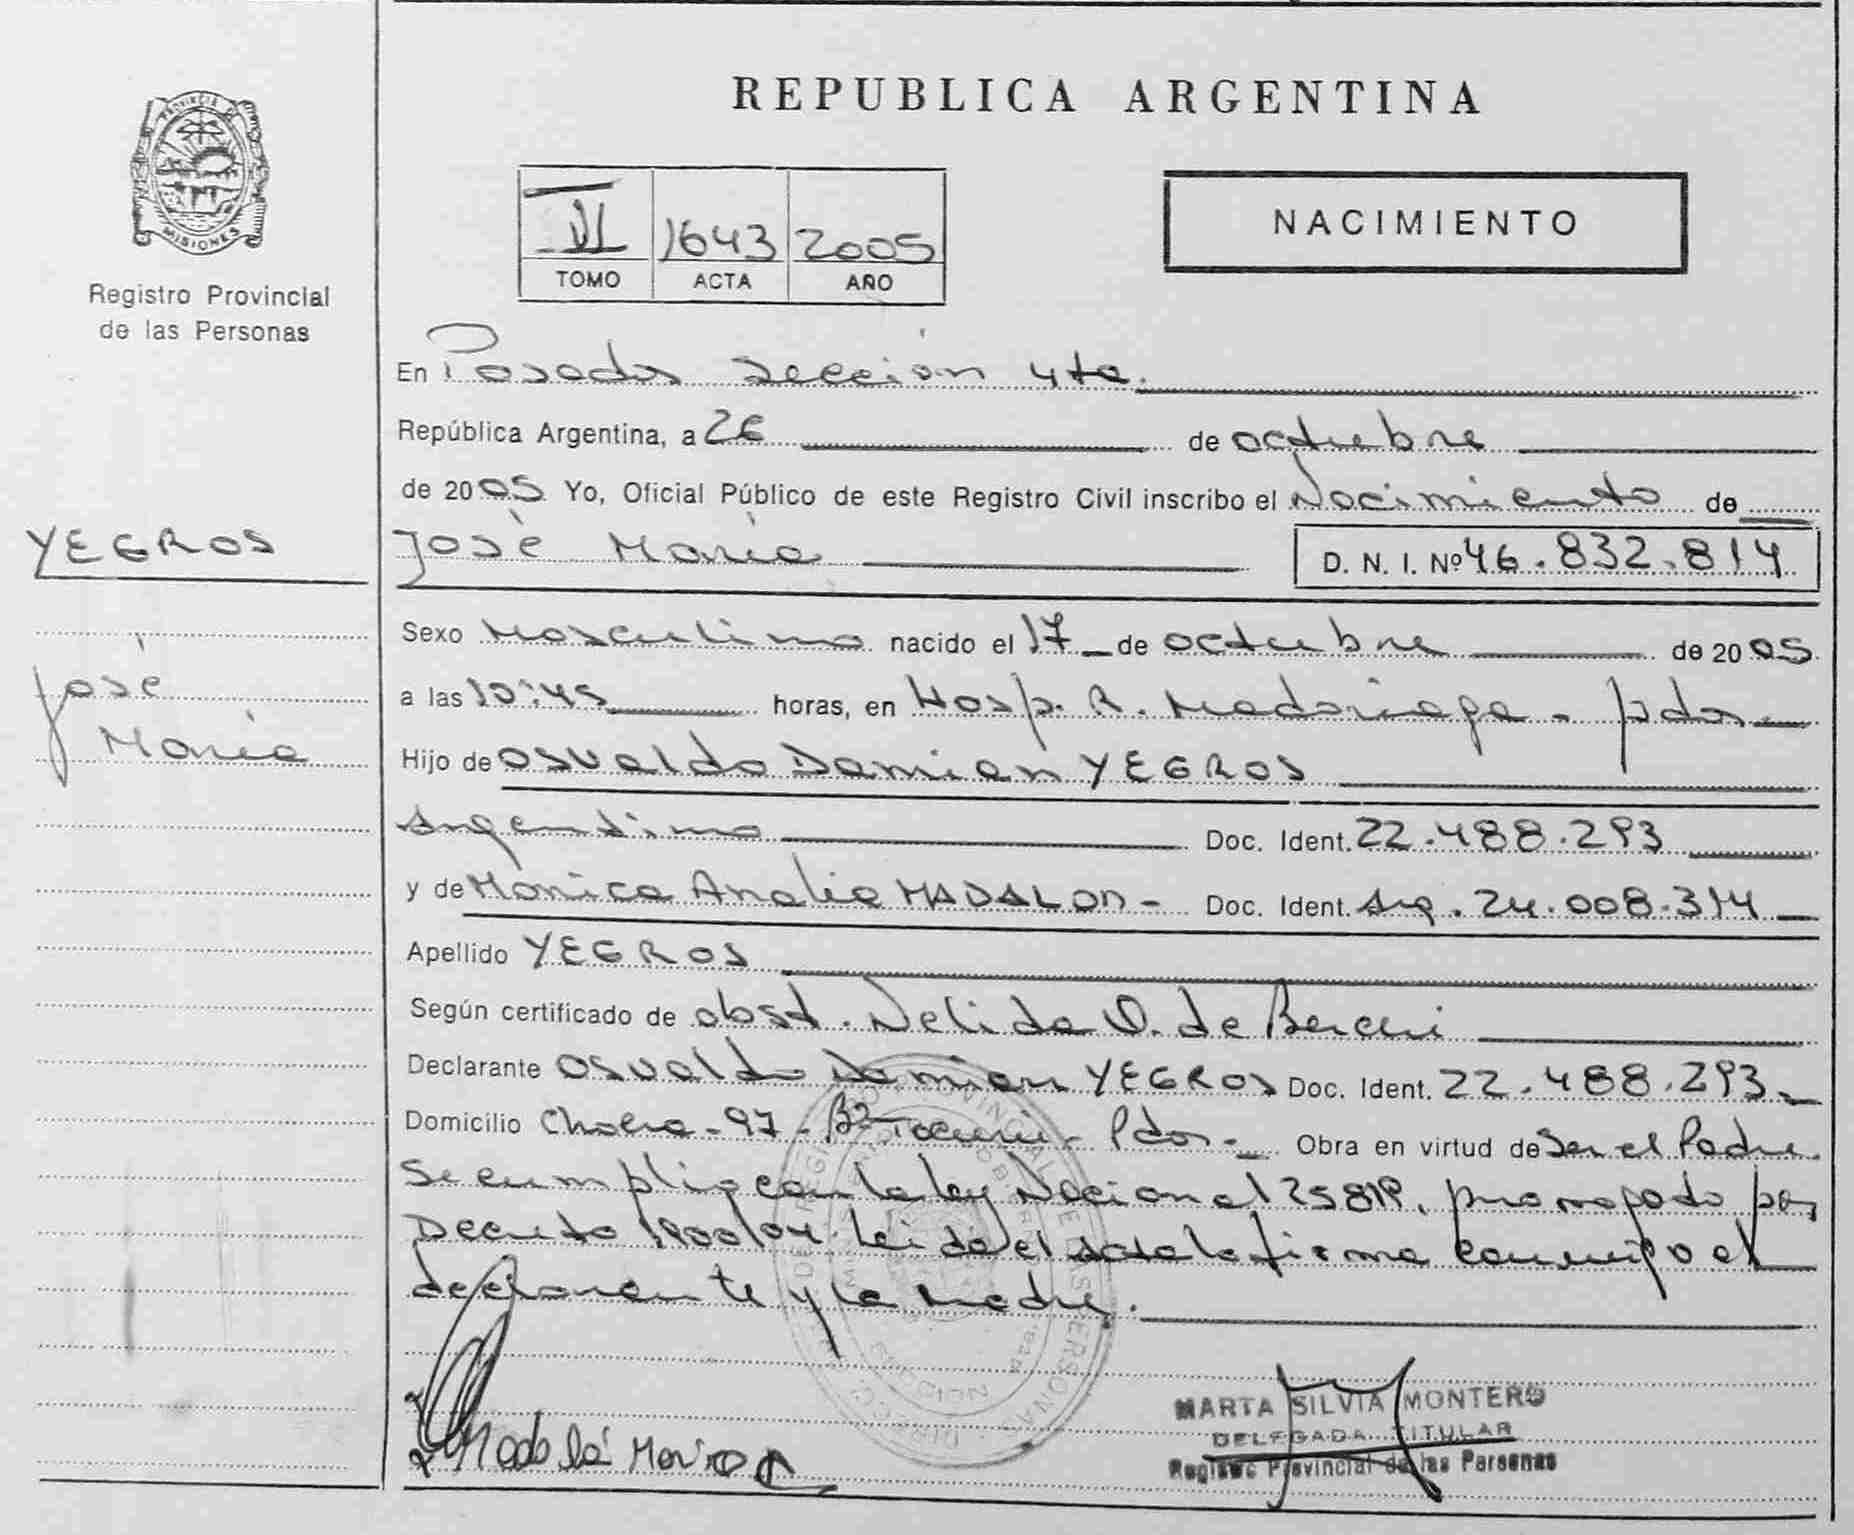 PROVINCIA DE
MISIONES
Registro Provincial
de las Personas
REPUBLICA ARGENTINA
1643 2005
TOMO ACTA AÑO
NACIMIENTO
En Posadas Sección 4ta.
República Argentina, a 26 de octubre
de 2005 Yo, Oficial Público de este Registro Civil inscribo el Nacimiento de
YEGROS
José María
D. N. I. Nº 46.832.814
Sexo Masculino nacido el 17 de octubre de 2005
José
María
a las 10:45 horas, en Hosp. R. Madariaga - Pdas -
Hijo de Osvaldo Damian YEGROS
Argentino Doc. Ident. 22.488.293
y de Mónica Analia MADALON - Doc. Ident. Arg. 24.008.314
Apellido YEGROS
Según certificado de obst. Nelida O. de
Declarante Osvaldo Damian YEGROS Doc. Ident. 22.488.293
Domicilio 97 - Bº - Pdas - Obra en virtud de Ser el Padre.
Se cumplio con la ley Nacional 25819, prorrogado por
Decreto 1900/04. Leida el acta la firma conmigo el
declarante y la madre.
MARTA SILVIA MONTERO
DELEGADA TITULAR
Registro Provincial de las Personas